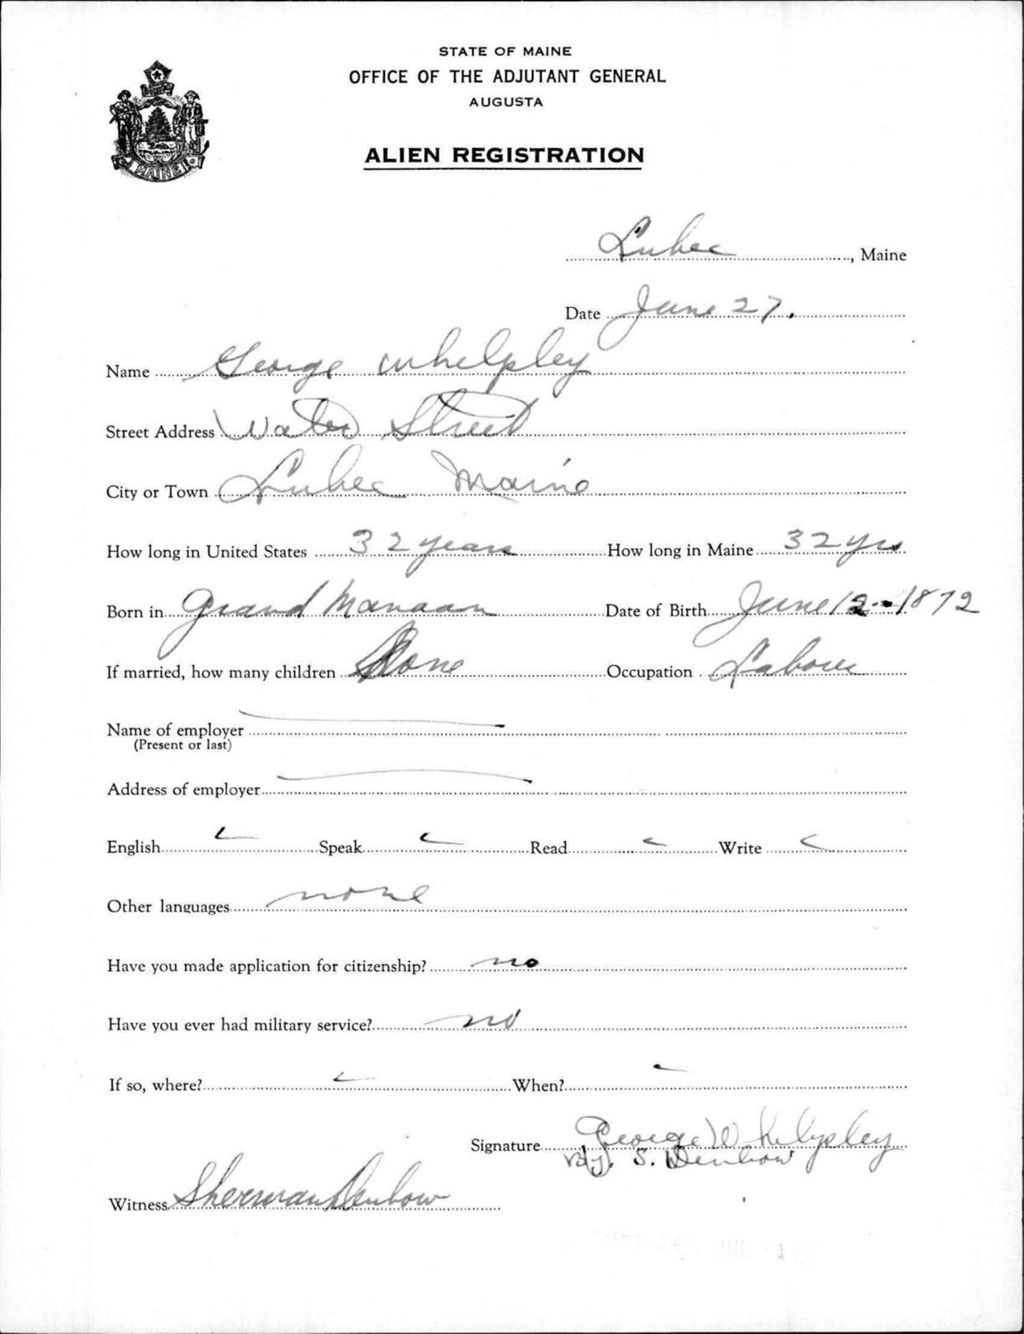 STATE OF MAINE
OFFICE OF THE ADJUTANT GENERAL
AUGUSTA
ALIEN REGISTRATION
MAINE
Lubec, Maine
Date June 27.
Name George Whelpley
Street Address Water Street
City or Town Lubec Maine
How long in United States 32 years How long in Maine 32 yrs
Born in Grand Manaan Date of Birth June 12-1872
If married, how many children None Occupation Laborer
Name of employer
(Present or last)
Address of employer
English Speak Read Write
Other languages none
Have you made application for citizenship? no
Have you ever had military service? no
If so, where? When?
Signature George Whelpley
by. S. Denbow
Witness Sherman Denbow